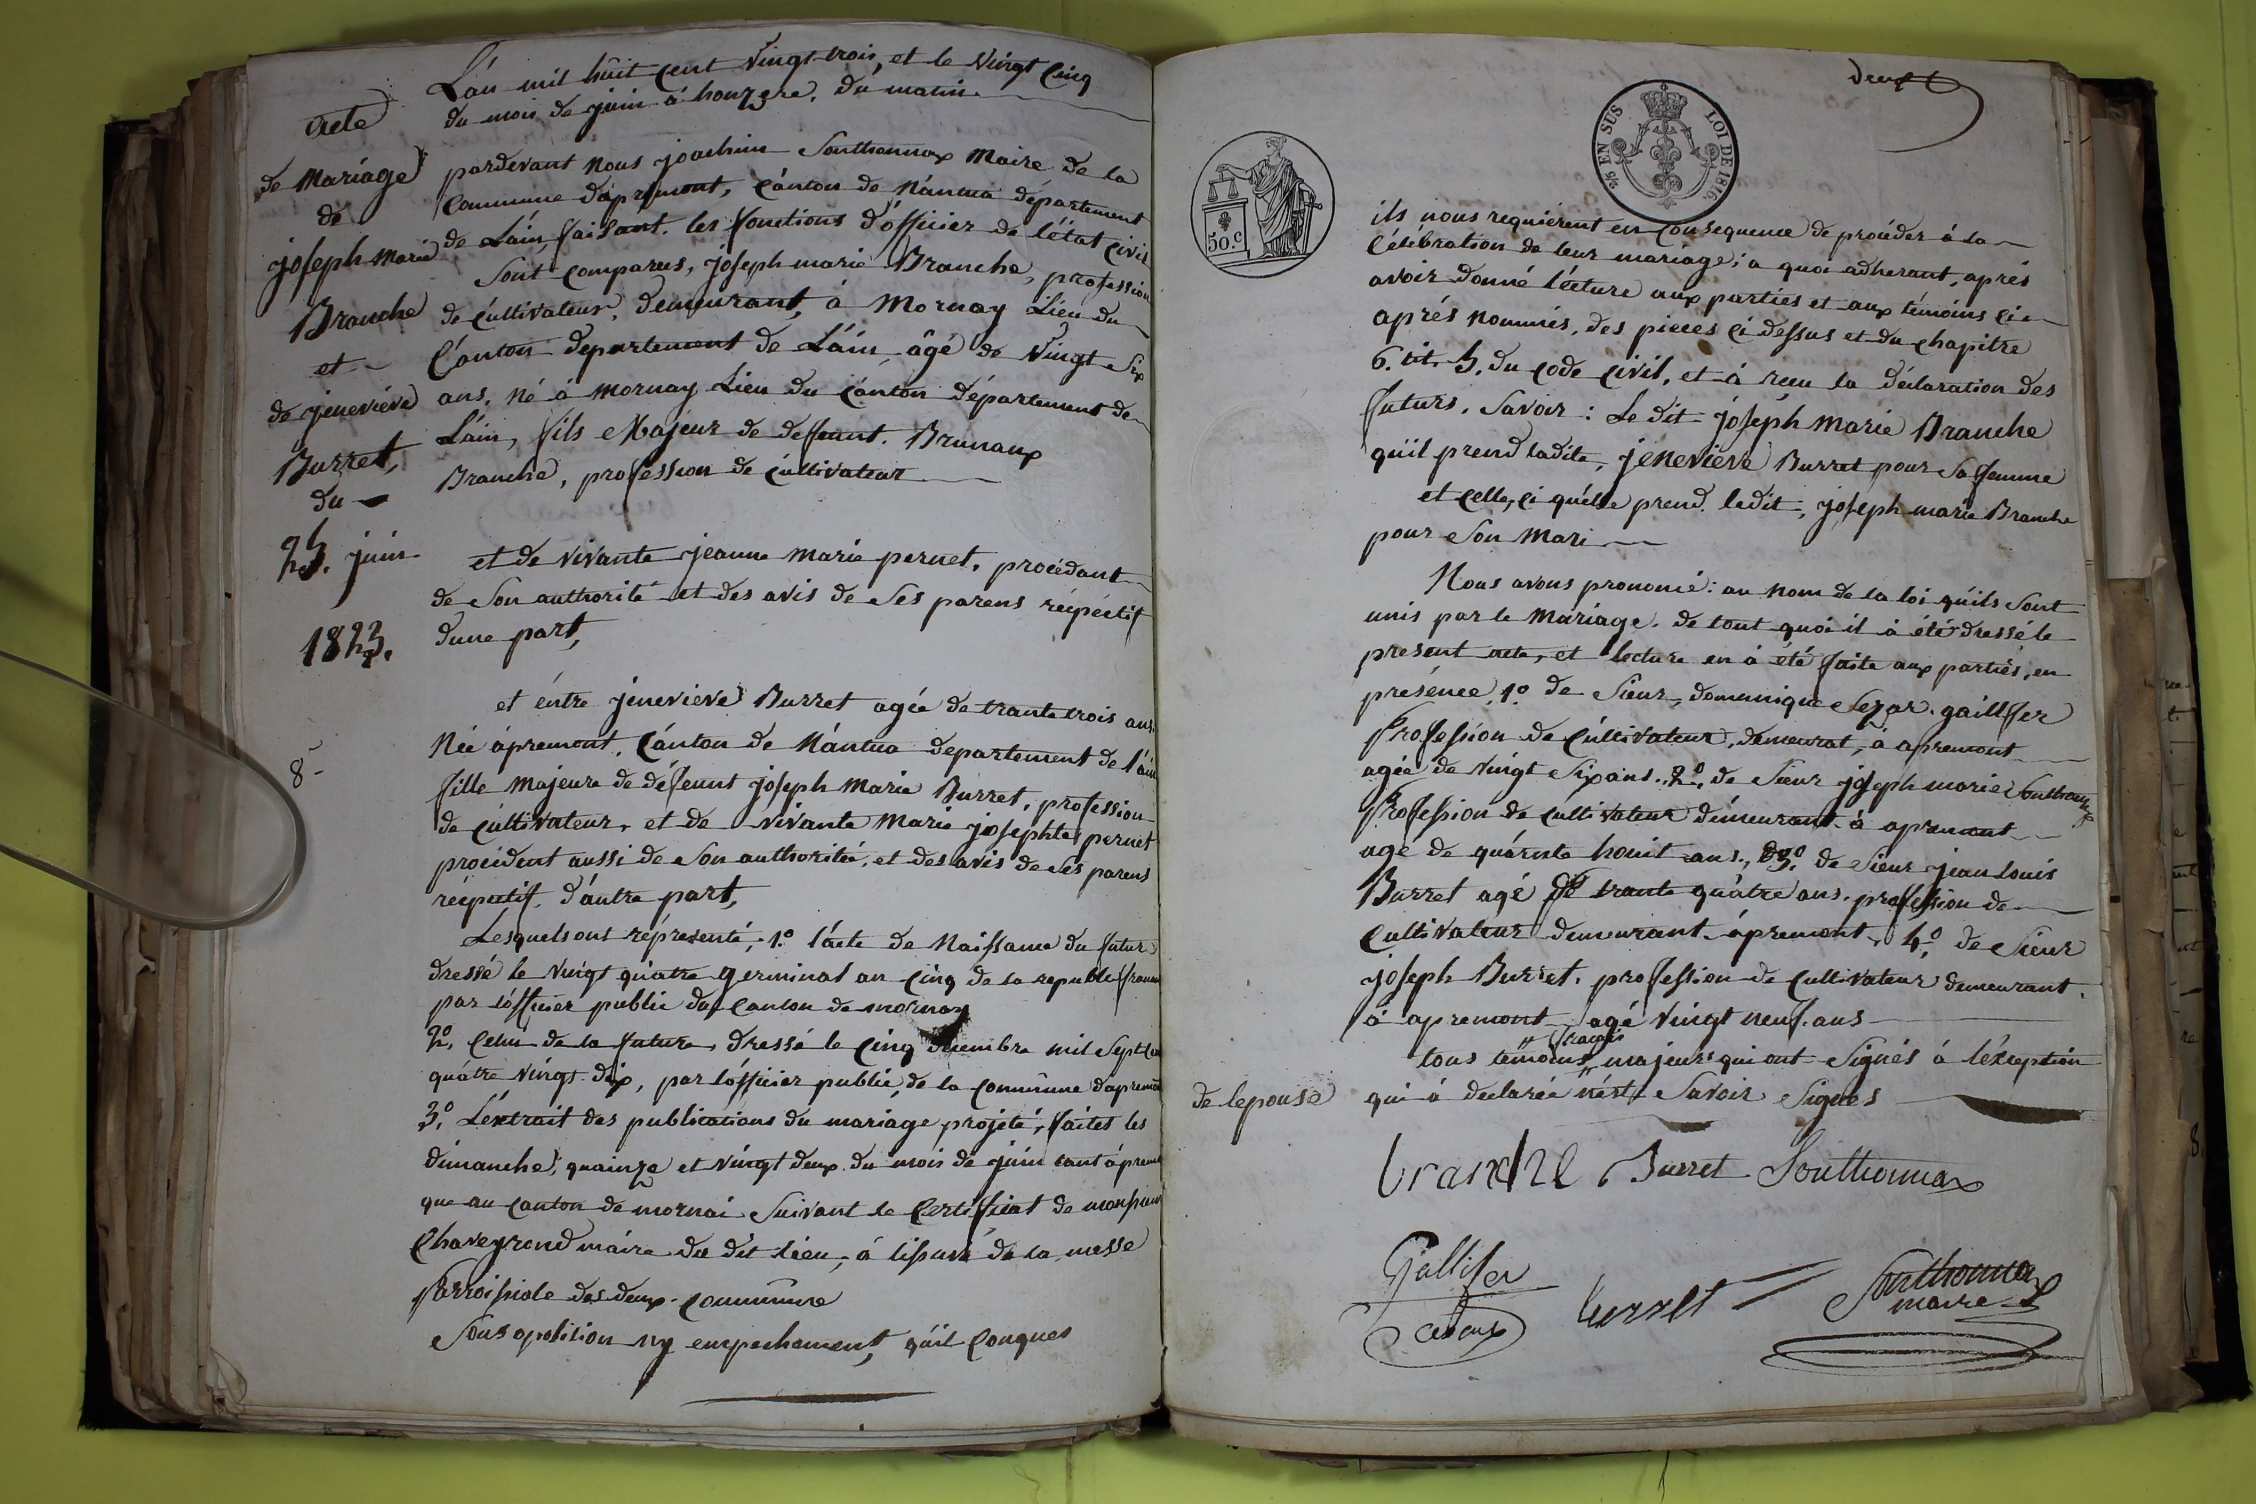 Acte
de Mariage
de
joseph Marie
Branche
et
de jenevieve
Burret,
du
25. juin
1823.
8
L'an mil huit Cent vingt trois, et le vingt Cinq
du mois de juin à honze re. du matin.
pardevant nous joachim Southonnax Maire de la
Commune d'apremont, Canton de Nantua département
de Láin, faisant les fonctions d'officier de l'état civil
Sont comparus, joseph marie Branche, profession
de Cultivateur, demeurant, à Mornay Lieu du
Canton departement de Láin, âgé de vingt Six
ans, né à mornay Lieu du Canton département de
Láin, fils Majeur de deffeunt. Brunaux
Branche, profession de Cultivateur
et de vivante jeanne marie pernet, procédant
de Son authorité et des avis de Ses parens réspéctif
dune part,
et éntre jenevieve Burret agée de trante trois ans
Née ápremont, Canton de Nántua departement de l'áin
fille majeure de défeunt joseph Marie Burret, profession
de cultivateur, et de vivante Marie josephte pernet
procédent aussi de Son authoritée, et des avis de Ses parens
réspectif, d'autre part,
Lesquels ont réprésenté, 1.º l'acte de Naissance du futur
dressé le vingt quatre germinal an Cinq de la republi france
par l'officier public du Canton de mornay
2º. Celui de la future, dressé le Cinq décembre mil Sept Cen
quatre vingt dix, par l'officier public, de la Commune dapremon
3º. L'extrait des publications du mariage projeté, faites les
dimanche, quainze et vingt deux du mois de juin tant ápremo
que au Canton de mornai Suivant le Certificat de monsieur
Chaveyrond maire du dit lieu, à lissue de la messe
parroissiale des deux Commune
Sans opolition ny empechement, quil Conques
50. C
2/5 EN SUS
LOI DE 1816.
ils nous requièrent en Consequence de procéder à la
Célébration de leur mariage; a quoi adherant, aprés
avoir donné lécture aux parties et aux témoins Ci
aprés nommés, des pieces Ci dessus et du chapitre
6. tit. 5. du Code Civil, et à reçu la déclaration des
futurs, Savoir : Le dit joseph Marie Branche
quil prend ladite, jenevieve Burret pour Sa femme
et celle, ci quélle prend ledit, joseph marie Branche
pour Son Mari
Nous avons prononcé : au nom de la loi quils Sont
unis par le Mariage. de tout quoi il à été dressé le
présent acte, et lecture en à été faite aux parties, en
présence 1º. de Sieur, domminique Cezar gailliffer
Profession de Cultivateur, demeurat, à apremont
agée de vingt Six ans. 2º. de Sieur joseph marie Southonnax
Profession de Cultivateur démeurant à apremont
agé de quarnte houit ans., 3º. de Sieur jean Louis
Burret agé de trante quatre ans, profession de
Cultivateur demeurant ápremont, 4º. de Sieur
joseph Burret, profession de Cultivateur demeurant
à apremont agé vingt neuf. ans
français
tous témoins majeurs qui ont Signés à l'éxception
de lepouse qui à déclarée nést Savoir Signés
branche Burret Southonnax
Gallifer
Burret
Southonnax
maire